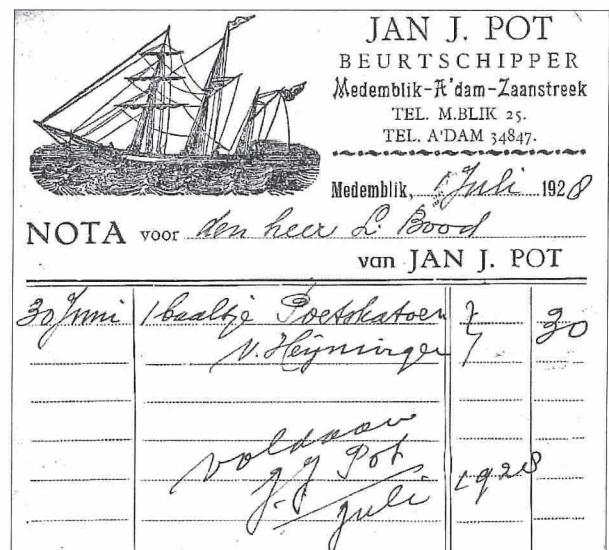 JAN J. POT
BEURTSCHIPPER
Medemblik-A'dam-Zaanstreek
TEL. M.BLIK 25.
TEL. A'DAM 34847.
Medemblik, Juli 1928
NOTA voor den heer L. Bood
van JAN J. POT
30 Juni 1 baaltje Poetskatoen 30
v. Heyningen
voldaan
J. J Pot
juli 1928